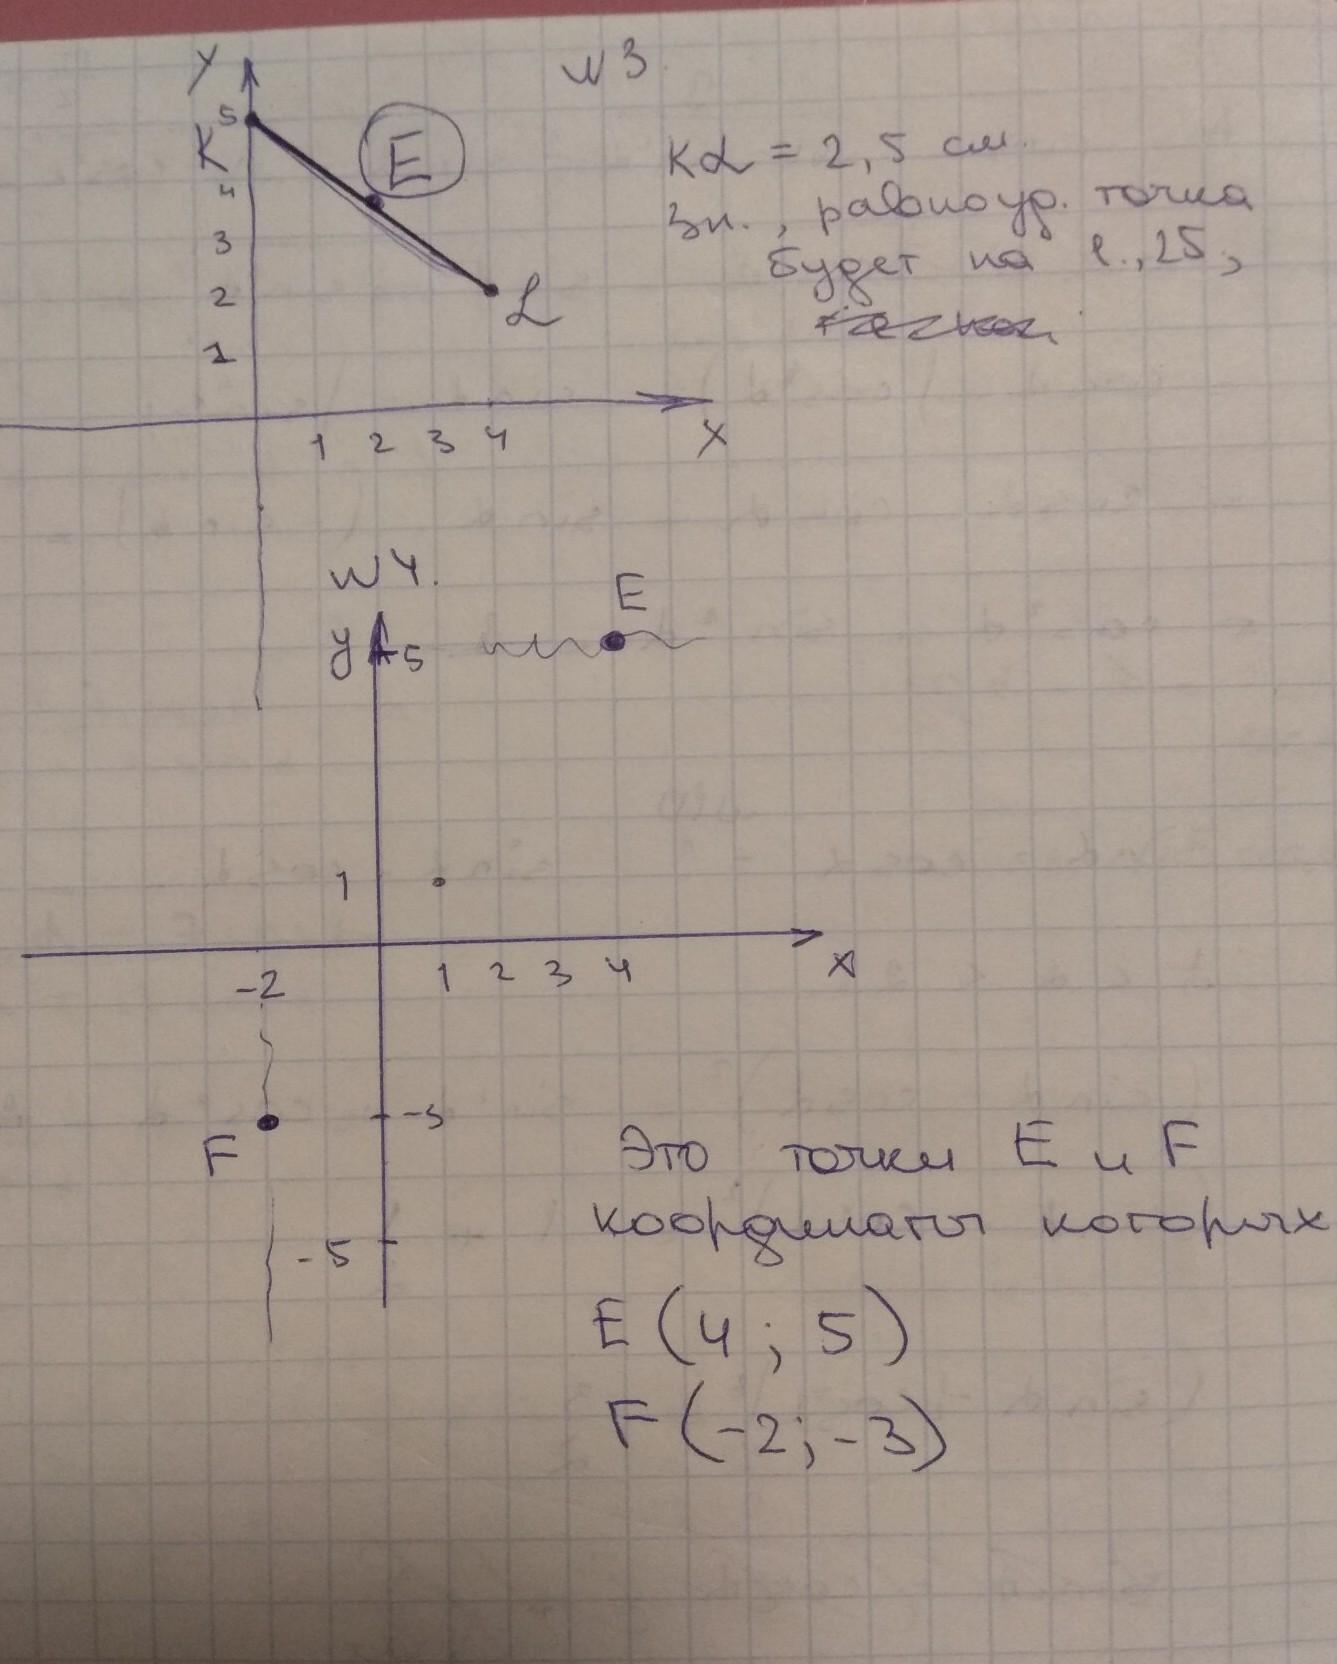 y N3
5
K E KL = 2,5 см.
4 Зн., равноуд. точка
3 будет на 1.,25,
2 L
1
1 2 3 4 x
N4.
E
y 5
1
-2 1 2 3 4 x
-3
F Это точки E и F
координаты которых
-5
E (4 ; 5)
F (-2; -3)